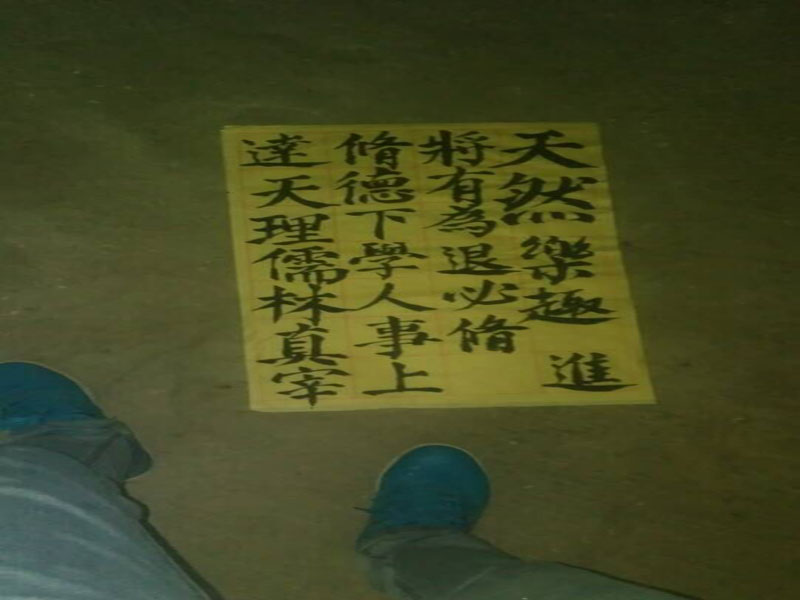 天然樂趣 進
將有為退必脩
脩德下學人事上
達天理儒林真宰